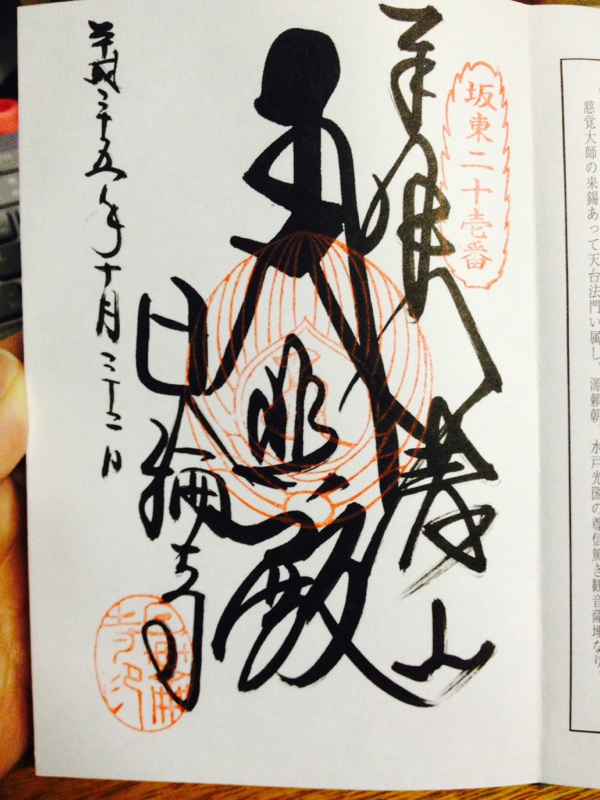 慈覚大師の来錫あって天台法門に属し、源頼朝、水戸光圀の尊信篤き観音薩埵なり。
坂東二十壱番
奉拝 八溝山
大悲殿
日輪寺
平成二十五年十月二十二日